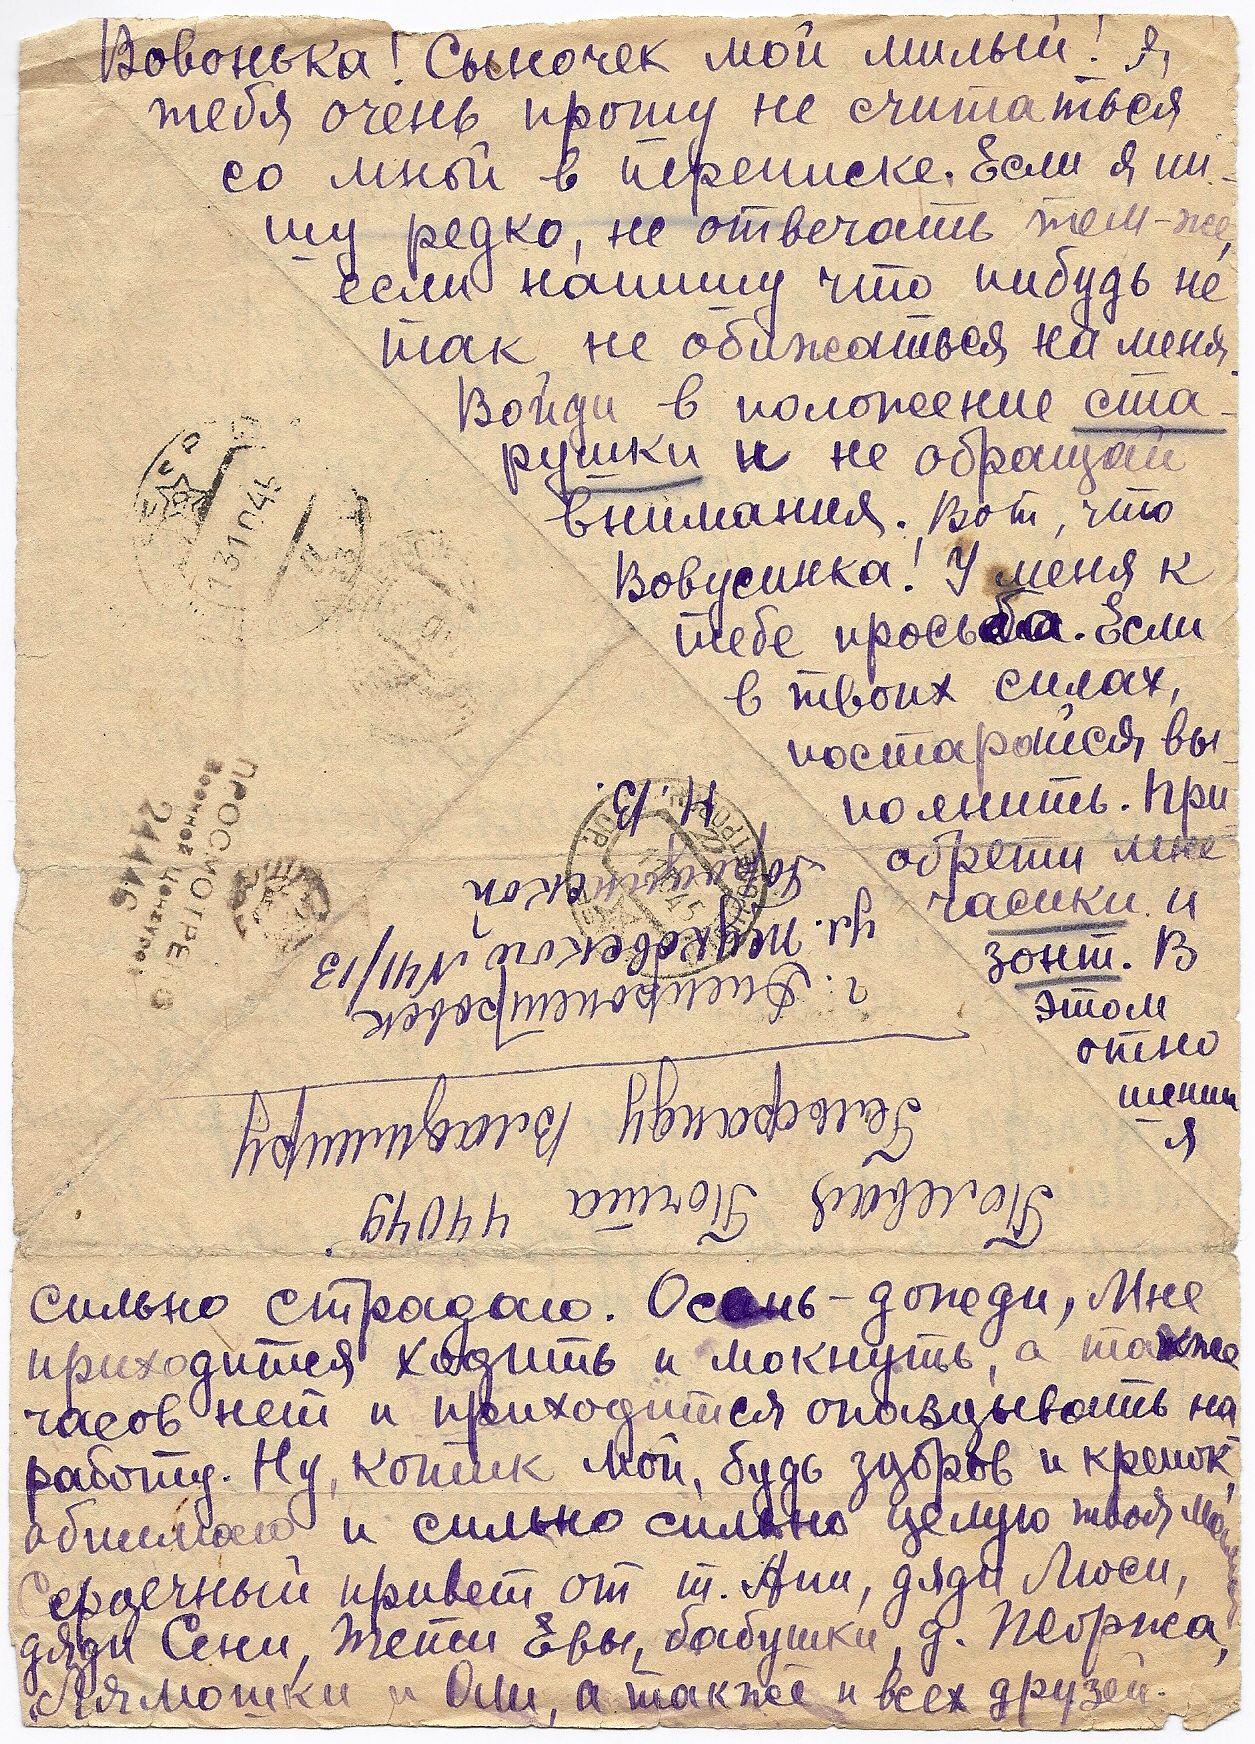 Вовонька! Сыночек мой милый! Я
тебя очень прошу не считаться
со мной в переписке. Если я пи-
шу редко, не отвечать тем-же,
если напишу что нибудь не
так, не обижаться на меня.
Войди в положение ста-
рушки и не обращай
внимания. Вот, что
Вовусинка! У меня к
тебе просьба. Если
в твоих силах,
постарайся вы-
полнить. При-
обрети мне
часики и
зонт. В
этом
отно
шении
я
сильно страдаю. Осень - дожди, мне
приходится ходить и мокнуть, а также
часов нет и приходится опаздывать на
работу. Ну, котик мой, будь здоров и крепок,
обнимаю и сильно сильно целую твоя мама
Сердечный привет от т. Ани, дяди Люси,
дяди Сени, тети Евы, бабушки, д. Жоржа,
Лямошки и Оли, а также и всех друзей.
Полевая Почта 44049
Гельфанду Владимиру
г. Днепропетровск
ул. Жуковского N 41/13
Городинской
Н. В.
ПРОСМОТРЕНО
Военной Цензурой